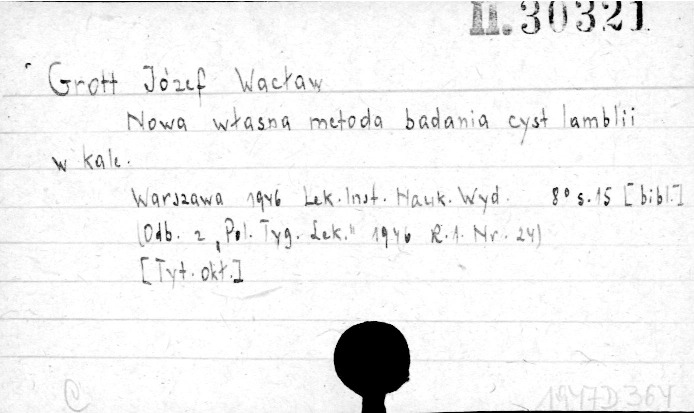 II. 30321
Grott Józef Wacław
Nowa własna metoda badania cyst lamblii
w kale.
Warszawa 1946 Lek. Inst. Nauk. Wyd. 8° s. 15 [bibl.]
(Odb. z „Pol. Tyg. Lek." 1946 R. 1. Nr. 24)
[Tyt. okł.]
C 1947D364